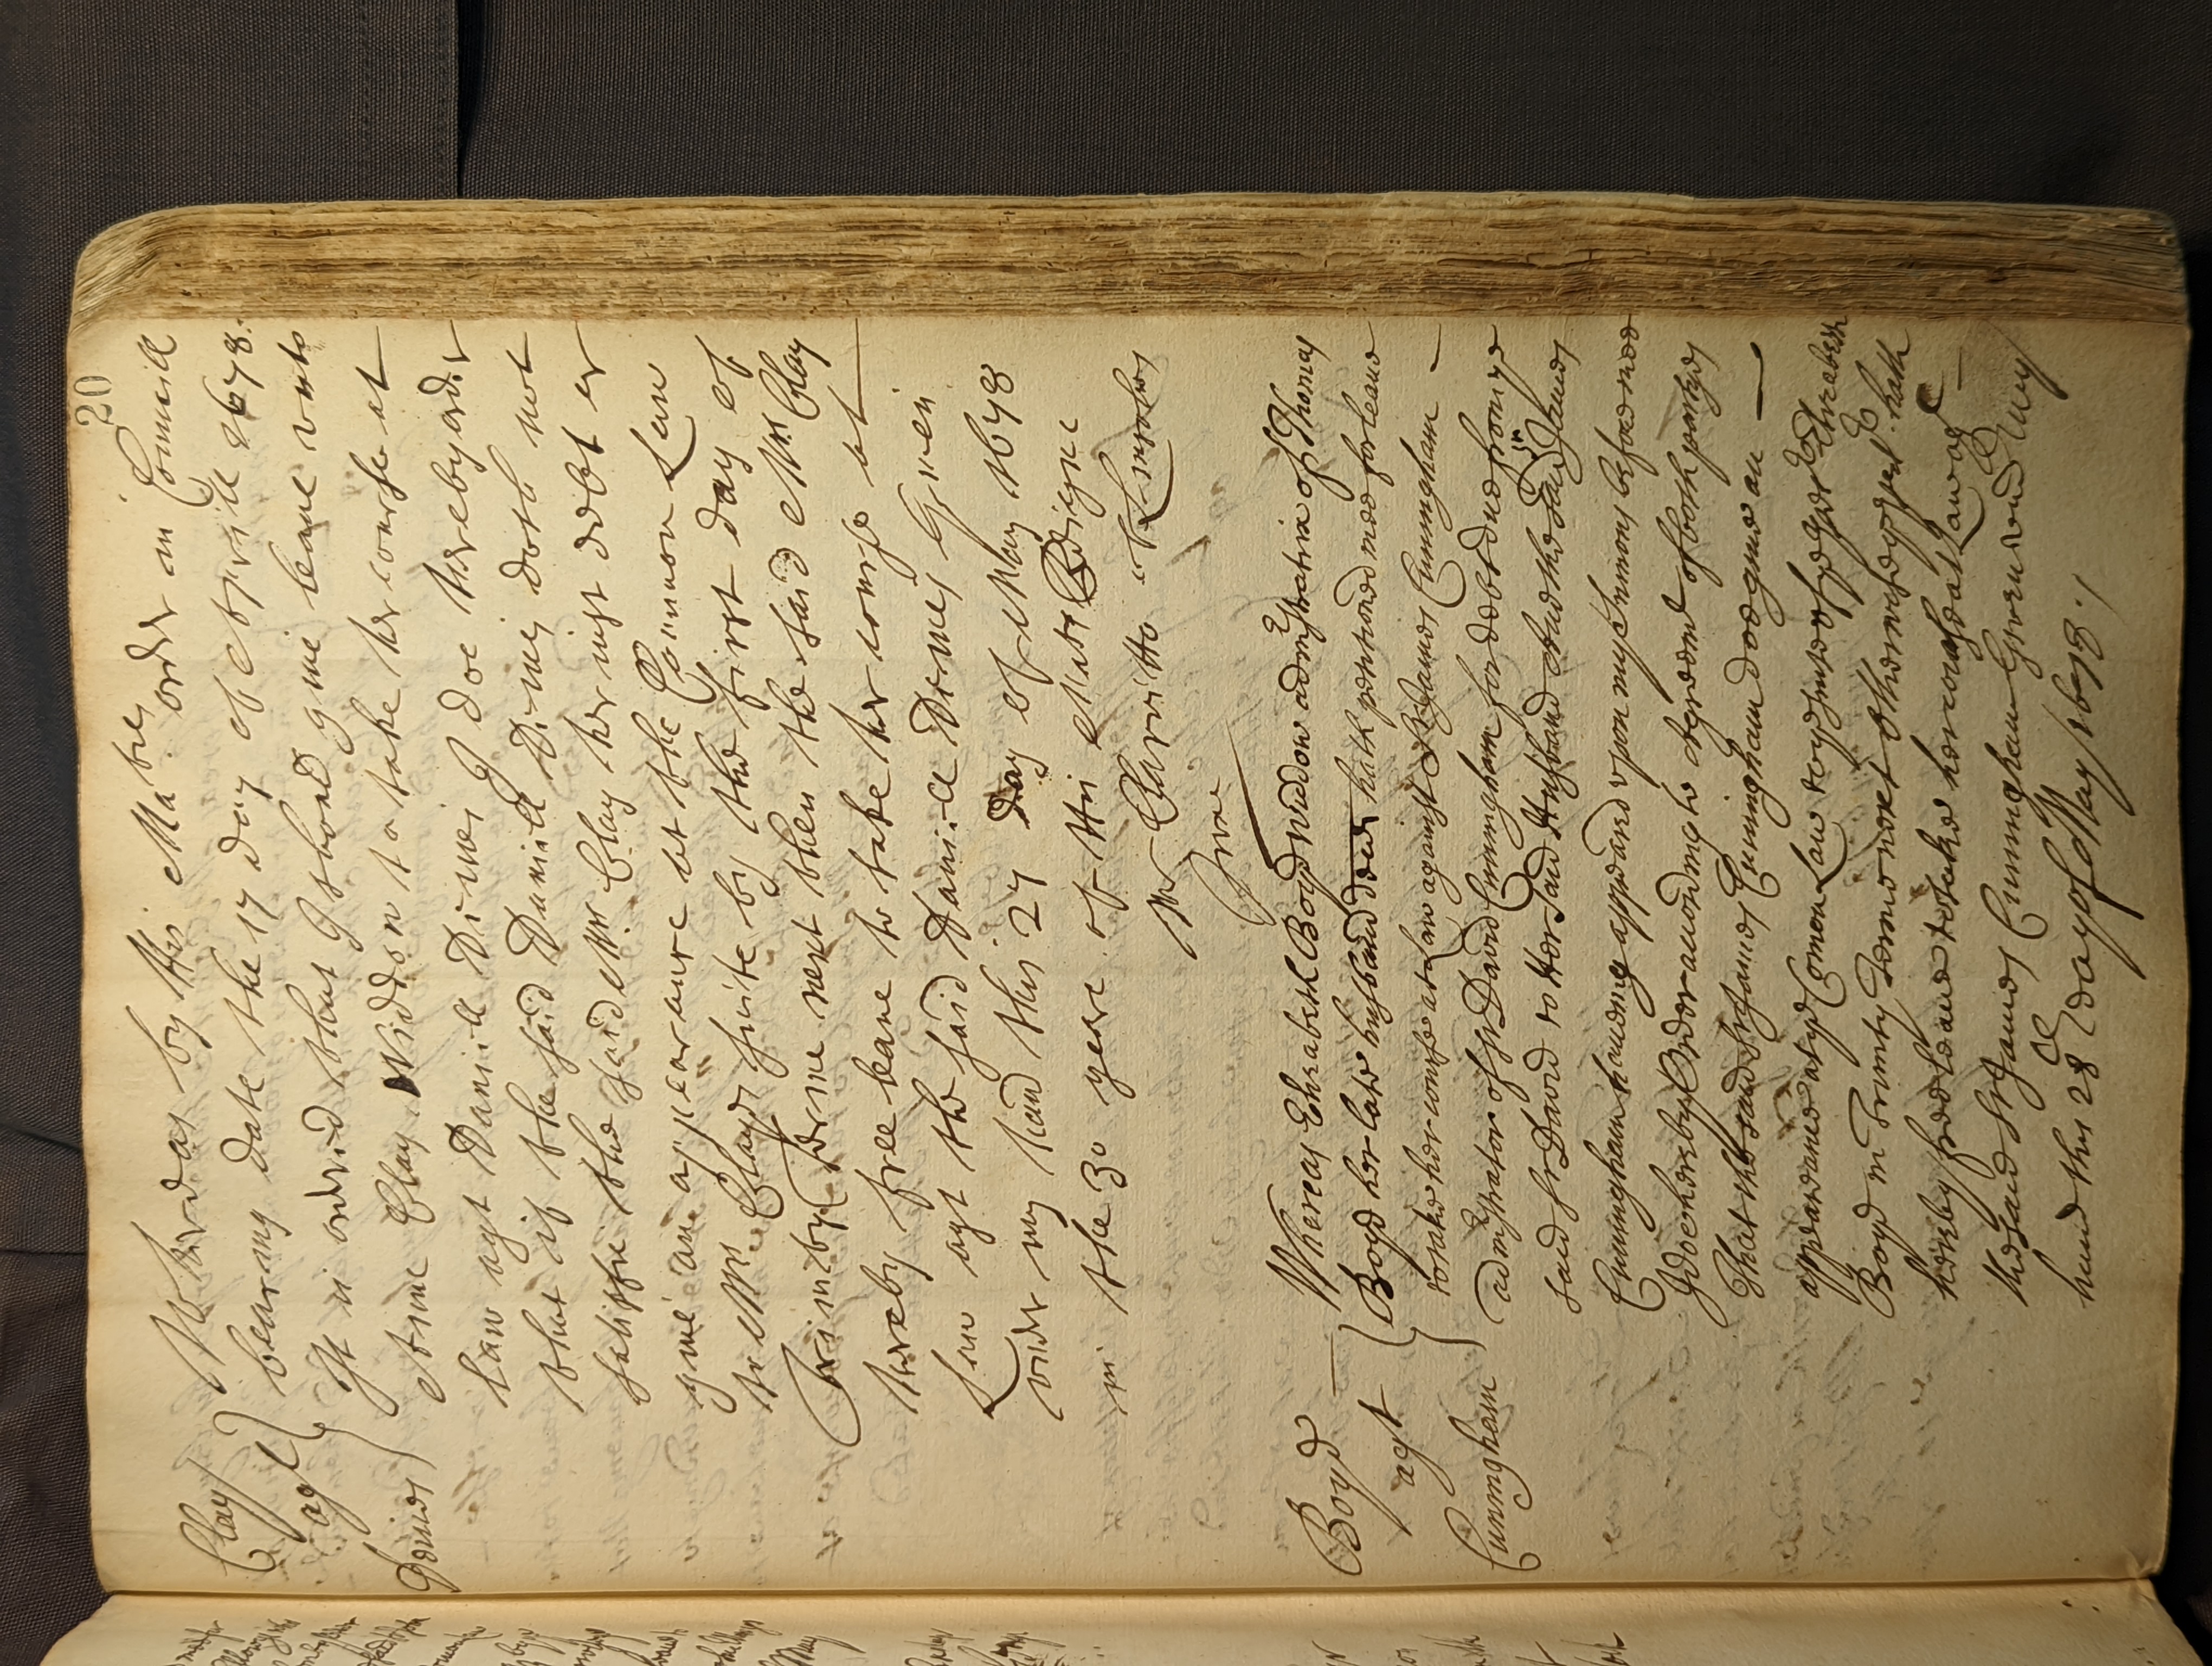 20
Clay
agt
Demies
Whereas by His Maties order in Councill
bearing date the 17 day of Aprill 1678.
It is ordered that I should give leave unto
Anne Clay Widdow to take her course at
Law agt Daniell Demies I doe hereby order
that if the said Daniell Demies doth not
satisfie the said Mrs Clay her iust debt or
give an appearance at the Common Law
to Mrs Clays suite by the first day of
Trinity Terme next then the said Mrs Clay
hereby free leave to take her course at
Law agt the said Daniell Demies Given
under my hand this 27 Day of May 1678
in the 30 yeare of His Maties Reigne
Mr Clay
Boyd
agt
Cunningham
Whereas Elizabeth Boyd Widdow admstratrix of Thomas
Boyd her late husband hath petitioned mee for leave
to take her course at Law against Sr James Cunningham
admstrator of Sr David Cunningham for debt due from ye
said Sr David to Her said Husband And the said Sr James
Cunningham haueing appeared upon my Sumons before mee
I doe hereby Order according to Agreement of both partyes
That the said Sr James Cunningham doe giue an
appearance at ye Comon Law to ye suite of ye sd Elizabeth
Boyd in Trinity Terme next Otherwise ye sd hath
hereby free leaue to take her course at Law agt
the said Sr James Cuningham Given under my
hand this 28th day of May 1678.